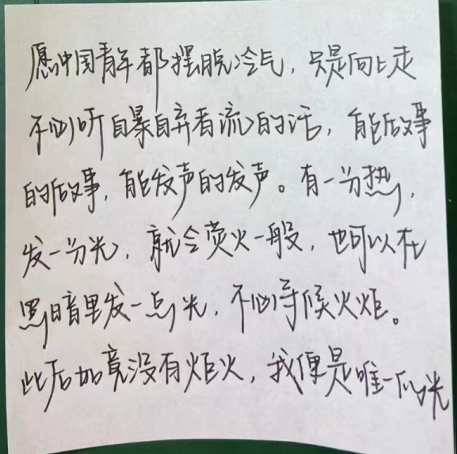 愿中国青年都摆脱冷气，只是向上走
不必听自暴自弃者流的话，能做事
的做事，能发声的发声。有一分热，
发一分光，就令萤火一般，也可以在
黑暗里发一点光，不必等候火炬。
此后如竟没有炬火，我便是唯一的光